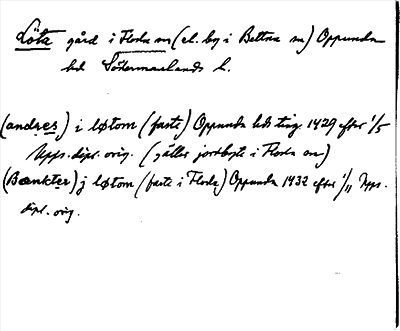 Löta gård i Floda sn (el. by i Bettna sn) Oppunda
hd Södermanlands l.
(andres) i løtom (faste) Oppunda hds ting 1429 efter 1/5
Upps. dipl. orig. (gäller jordbyte i Floda sn)
(Bænkter) j løtom (faste i Floda) Oppunda 1432 efter 1/11 Upps.
dipl. orig.